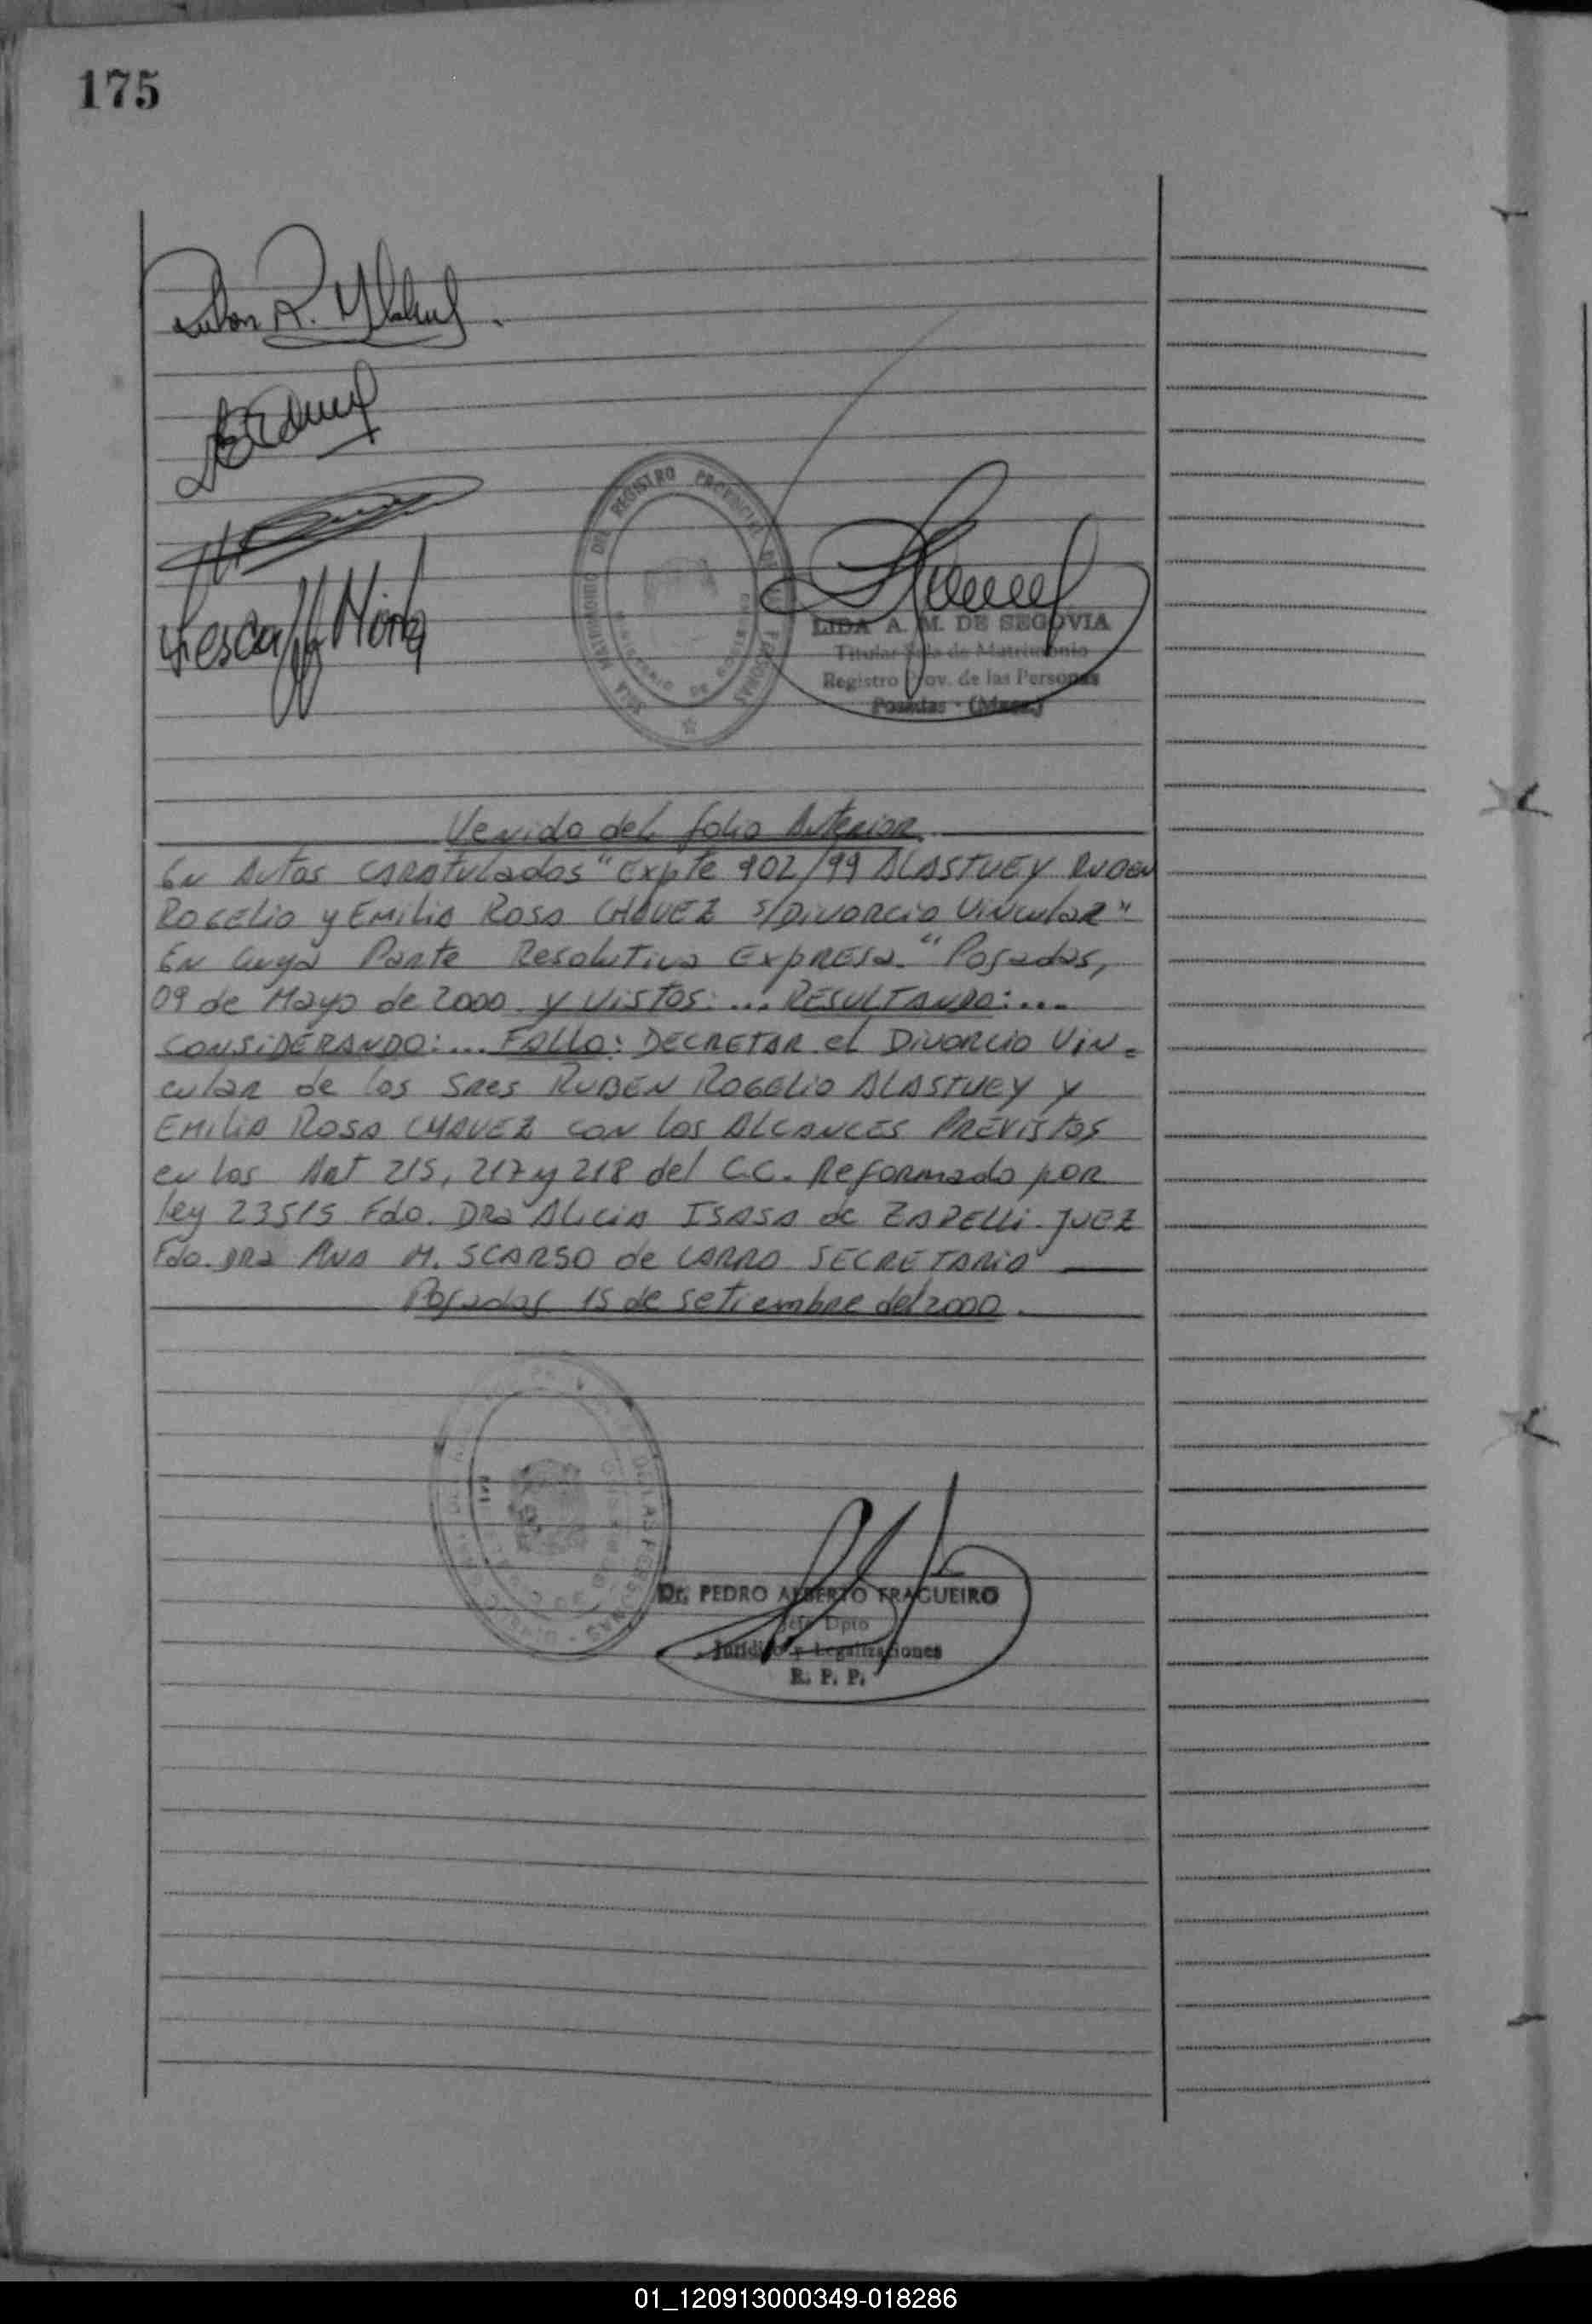 175
DEL REGISTRO PROVINCIAL DE LAS PERSONAS
SALA MATRIMONIO
LIDA A. M. DE SEGOVIA
Titular Sala de Matrimonio
Registro Prov. de las Personas
Posadas - (Mnes.)
Venido del folio Anterior.
En Autos CARATulados "Expte 902/99 ALASTUEY RUBEN
ROGELIO y EMiliA ROSA CHAVEZ S/DIVORCIO VINCULAR"
En cuya Parte Resolutiva ExPRESA. "Posadas,
09 de Mayo de 2000 y VISTOS: ... RESULTANDO: ...
CONSIDERANDO: ... FALLO: DECRETAR el DIVORCIO VIN=
cular de los SRes RUBEN ROGELIO ALASTUEY y
EMILIA ROSA CHAVEZ con los ALCANCES PREVISTOS
en los Art 215, 217 y 218 del C.C. Reformado por
ley 23515 Fdo. DRA ALICIA ISASA de ZAPELLI. JUEZ
Fdo. DRA ANA M. SCARSO de CARRO SECRETARIA
Posadas 15 de setiembre del 2000.
DE LAS PERSONAS
Dr. PEDRO ALBERTO FRAGUEIRO
Jefe Dpto
Jurídico y Legalizaciones
R. P. P.
01_120913000349-018286